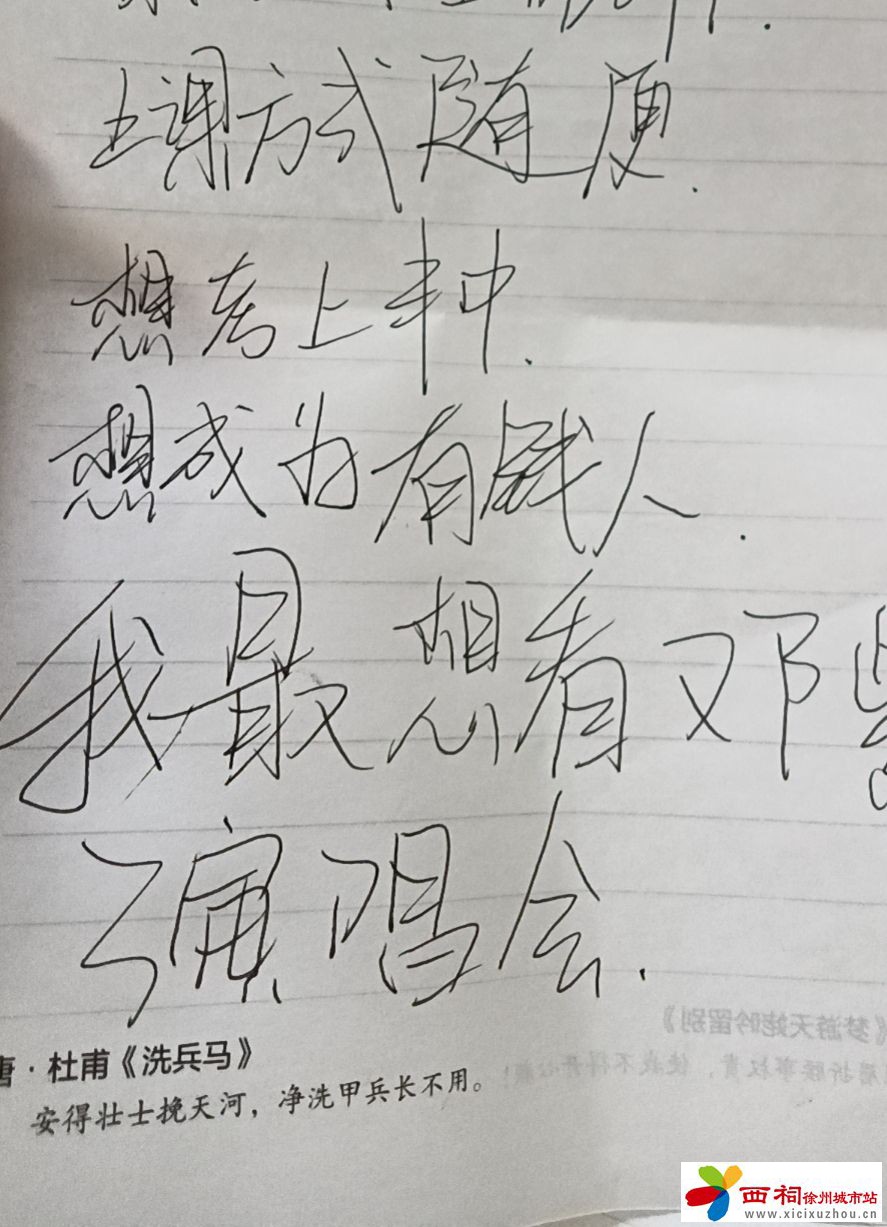 上课方式随便.
想考上丰中.
想成为有钱人.
我最想看邓紫
演唱会.
唐·杜甫《洗兵马》
安得壮士挽天河，净洗甲兵长不用。
《梦游天姥吟留别》
眉折腰事权贵，使我不得开心颜！
西祠徐州城市站
www.xicixuzhou.cn